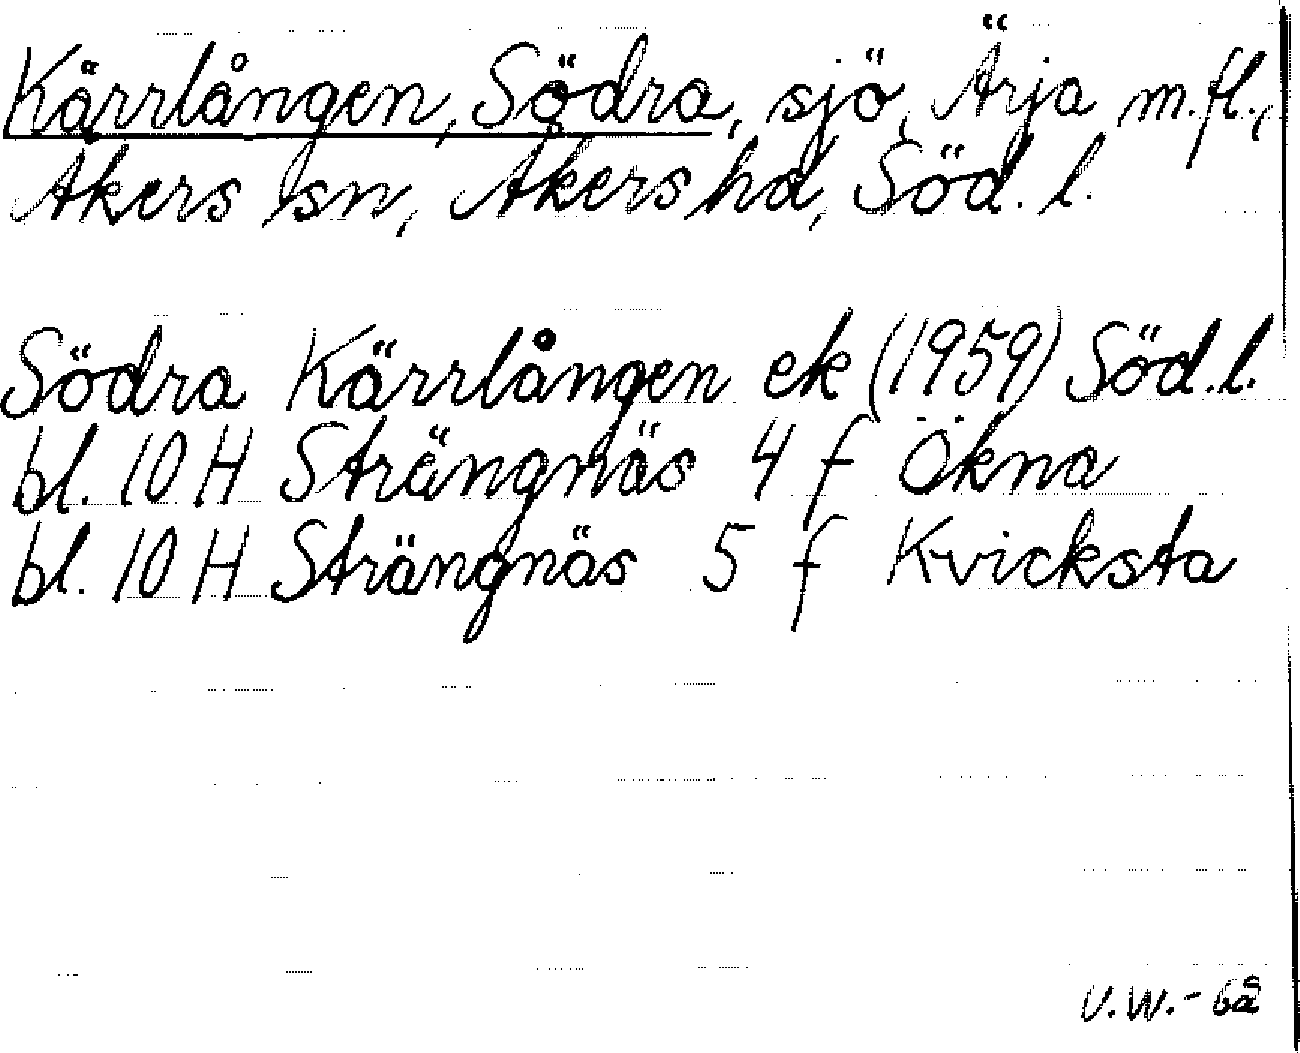 Kärrlången, Södra, sjö, Ärja m.fl.,
Åkers sn, Åkers hd, Söd. l.
Södra Kärrlången ek (1959) Söd.l.
bl. 10 H Strängnäs 4 f Ökna
bl. 10 H Strängnäs 5 f Kvicksta
V.W.-62